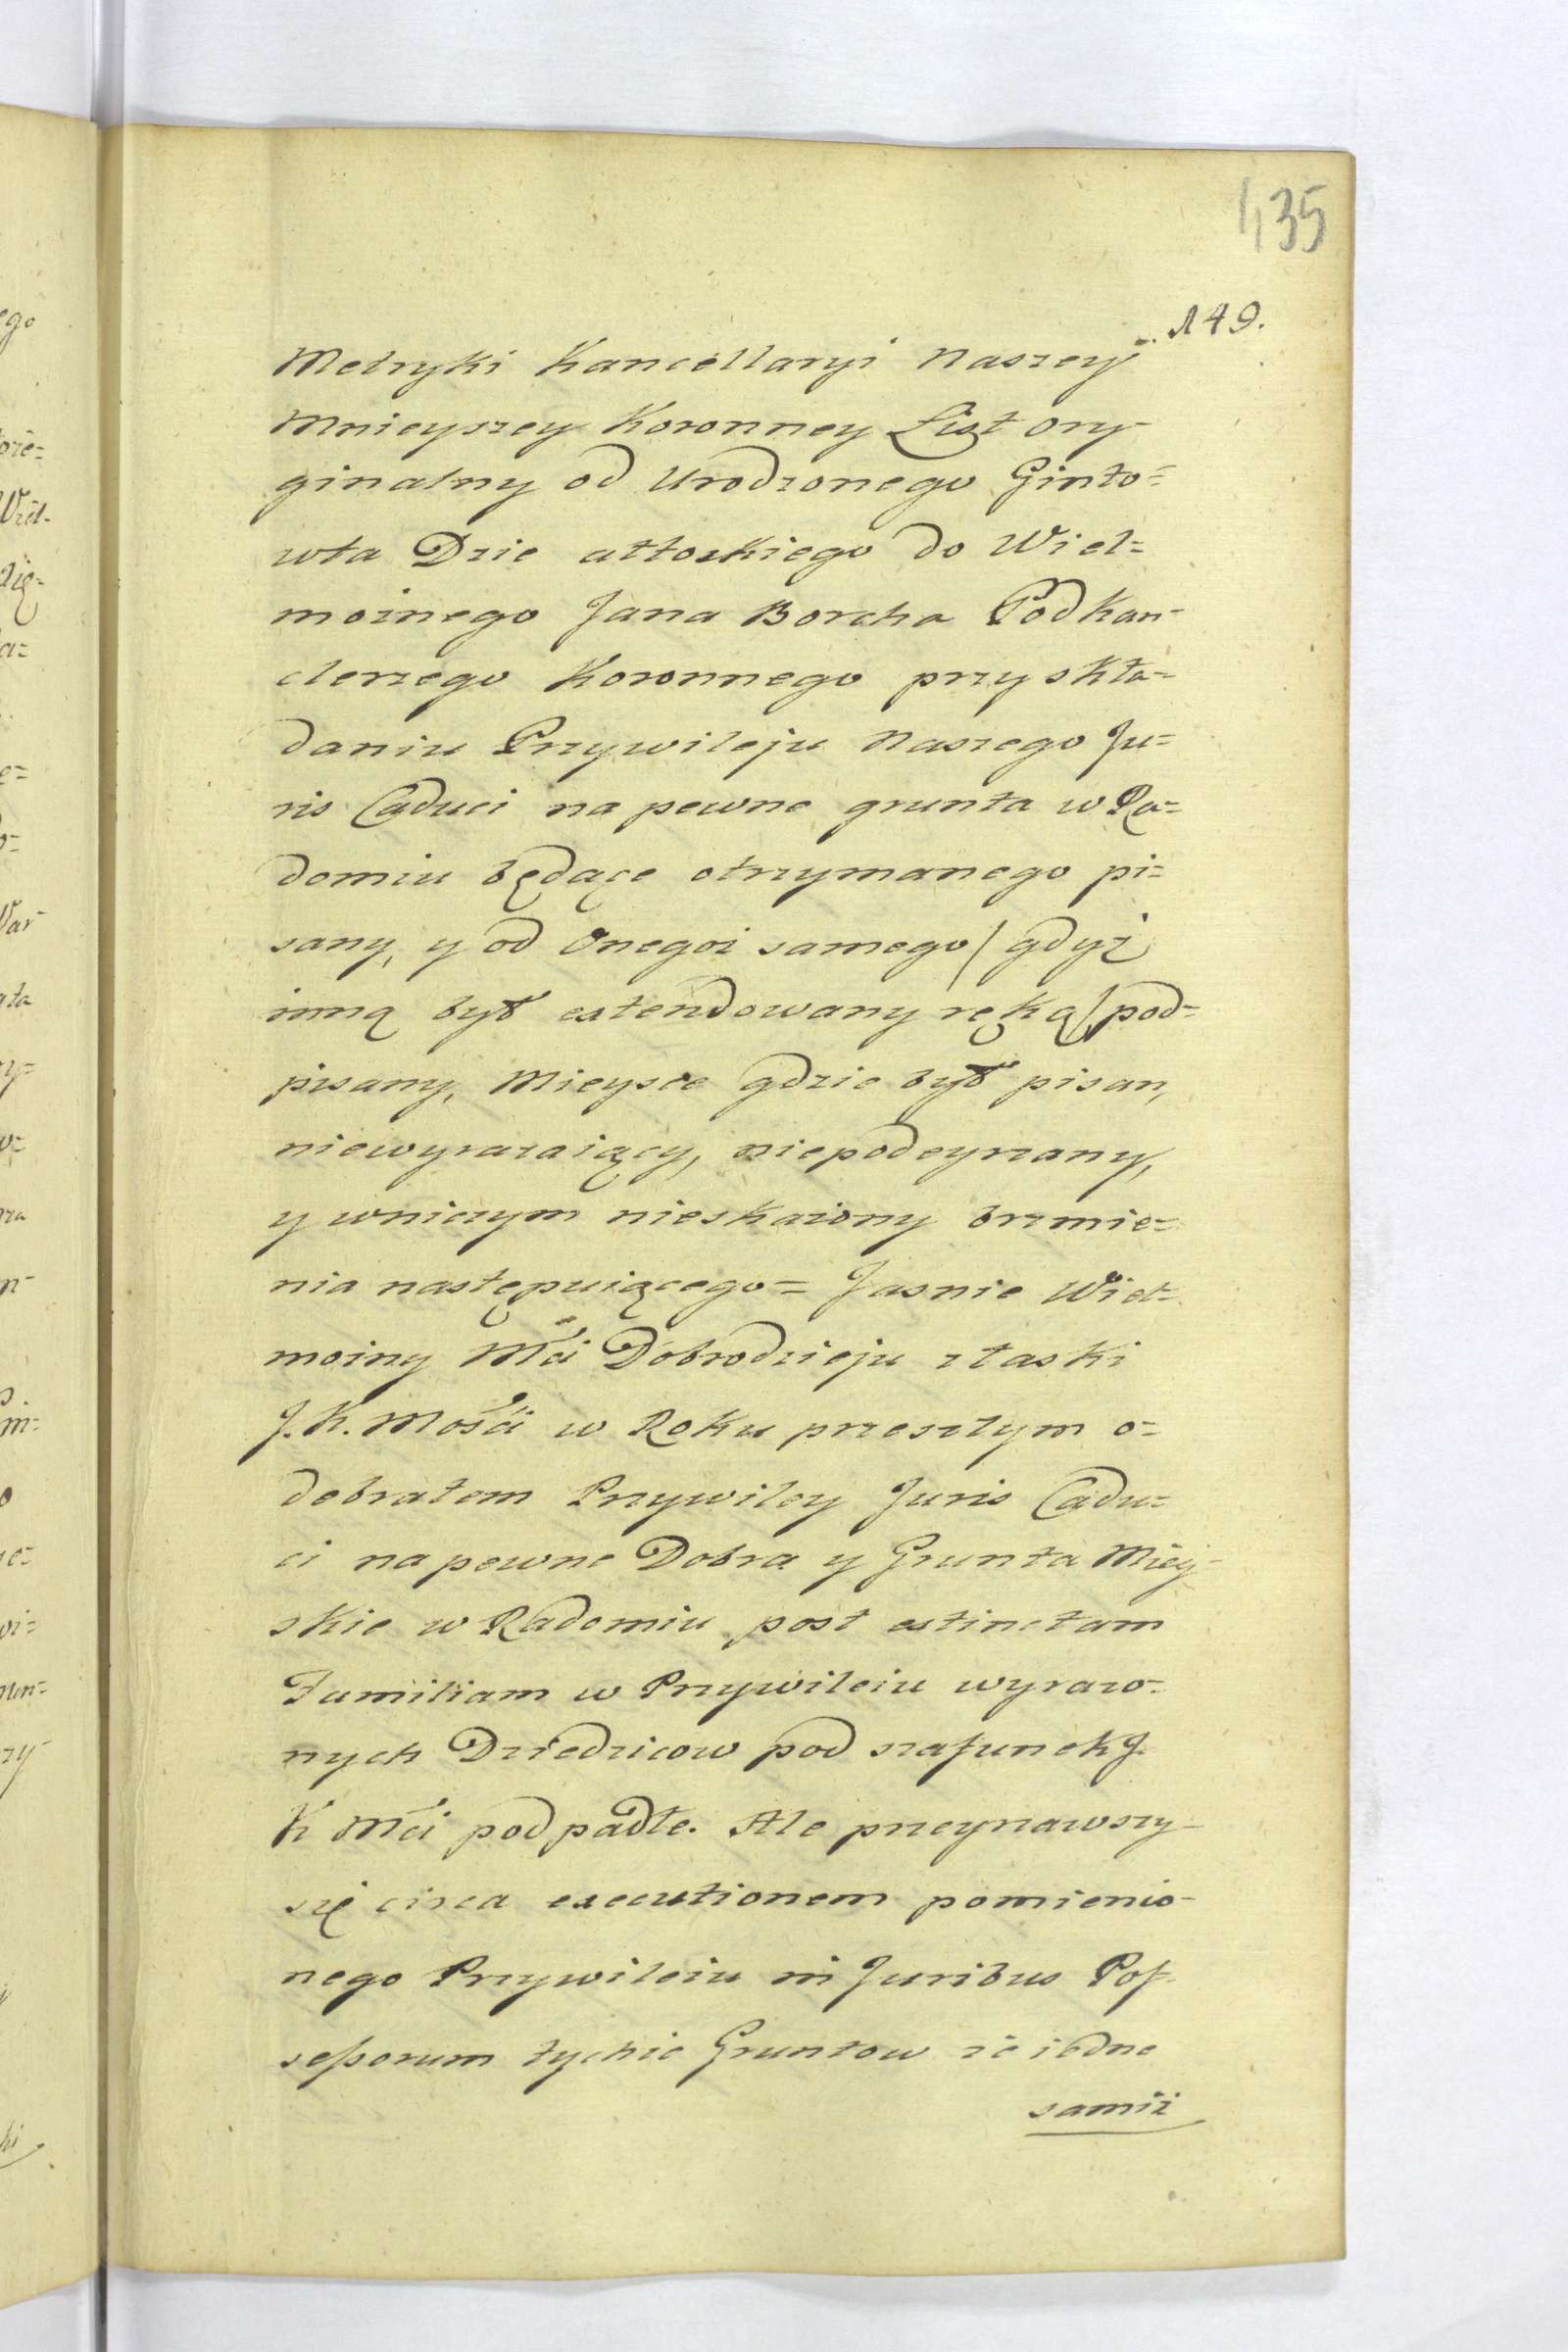 435
149.
Metryki Kancellaryi Naszey
Mnieyszey Koronney List ory-
ginalny od Urodzonego Ginto=
wta Dzie attoskiego do Wiel=
możnego Jana Borcha Podkan-
clerzego Koronnego przy skła=
daniu Przywileju Naszego Ju=
ris Caduci na pewne grunta w Ra=
domiu będące otrzymanego pi=
sany, y od Onegoż samego / gdyż
inną był extendowany ręką / pod=
pisany, Mieysce gdzie był pisan,
niewyrażaiący, niepodeyrzany,
y wniczym nieskażony brzmie=
nia następuiącego = Jasnie Wiel=
możny Mći Dobrodzieju z łaski
J. K. Mośći w Roku przeszłym o=
debrałem Przywiley Juris Cadu=
ci na pewne Dobra y Grunta Miey-
skie w Radomiu post extinctam
Familiam w Przywileiu wyrażo=
nych Dziedzicow pod szafunek J.
K Mći podpadłe. Ale przeyrzawszy-
się circa executionem pomienio-
nego Przywileiu in Juribus Pos-
sessorum tychże Gruntow że iedne
samiż